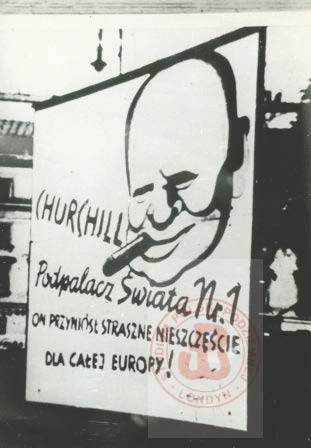 CHURCHILL
Podpalacz Świata Nr. 1
ON PRZYNIÓSŁ STRASZNE NIESZCZĘŚCIE
DLA CAŁEJ EUROPY!
LONDYN